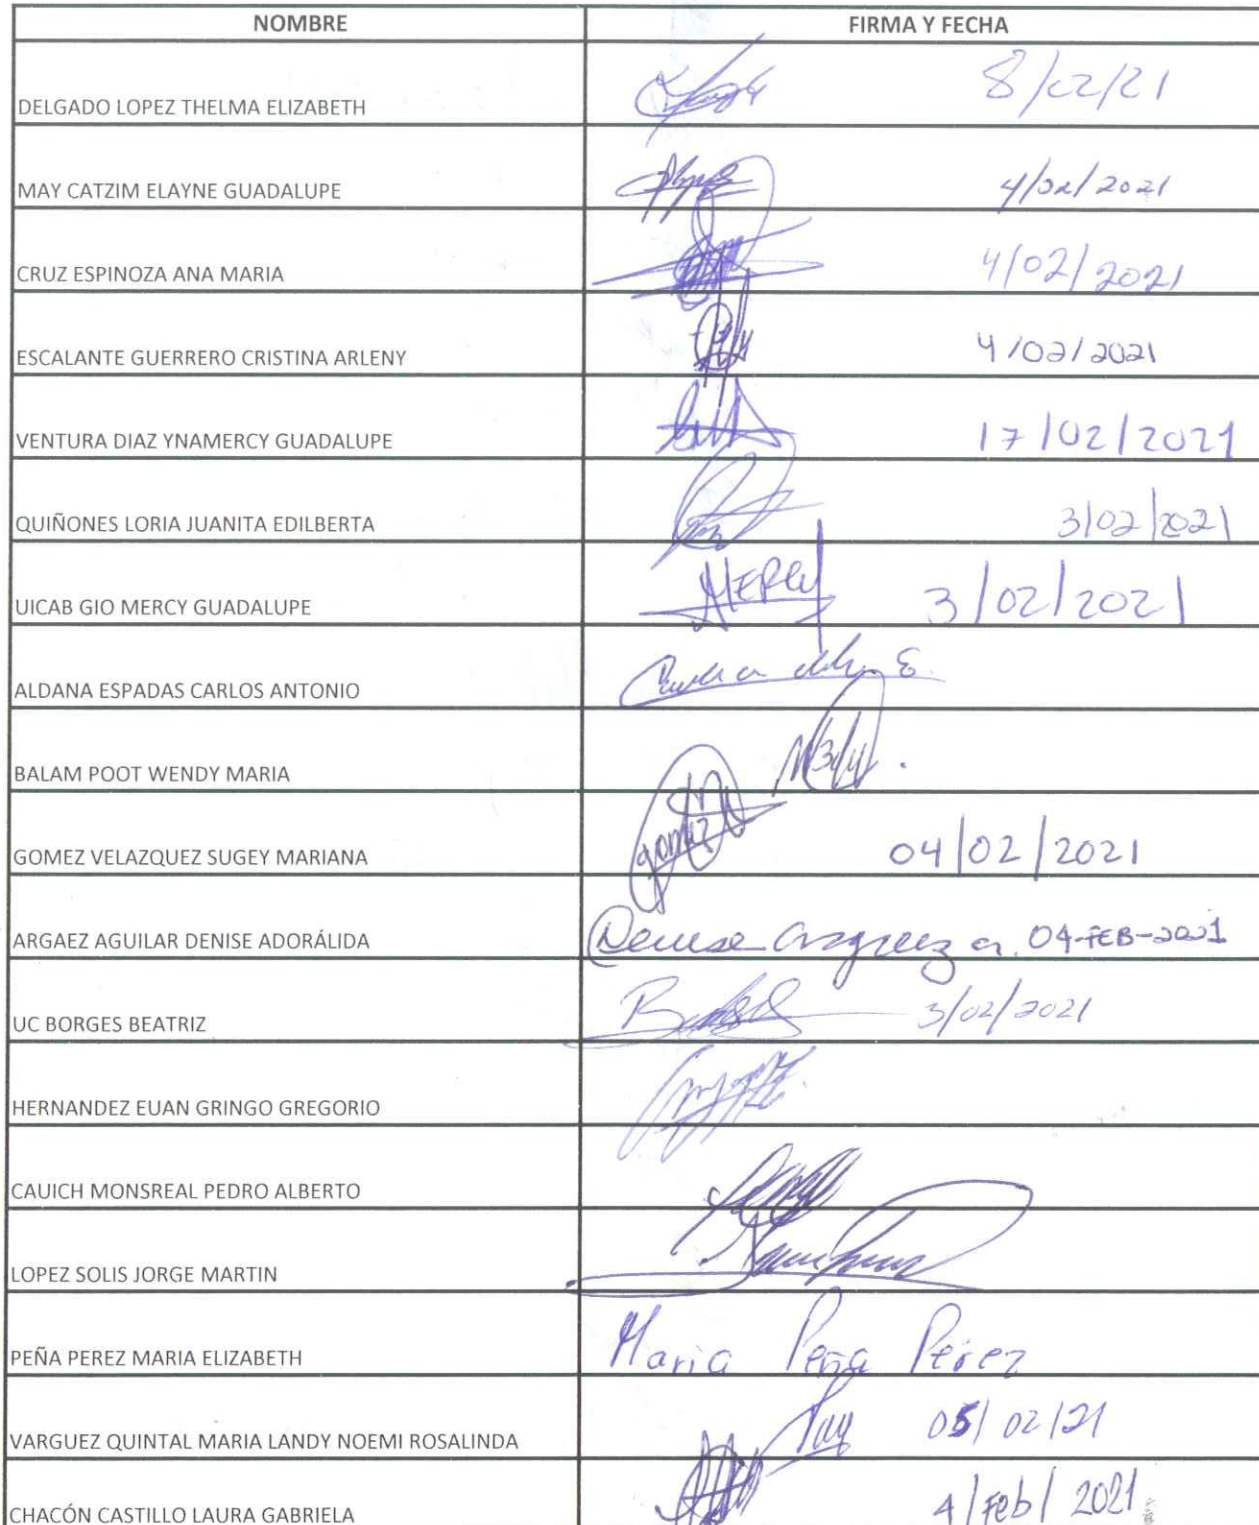 NOMBRE FIRMA Y FECHA
DELGADO LOPEZ THELMA ELIZABETH 8/02/21
MAY CATZIM ELAYNE GUADALUPE 4/02/2021
CRUZ ESPINOZA ANA MARIA 4/02/2021
ESCALANTE GUERRERO CRISTINA ARLENY 4/02/2021
VENTURA DIAZ YNAMERCY GUADALUPE 17/02/2021
QUIÑONES LORIA JUANITA EDILBERTA 3/02/2021
UICAB GIO MERCY GUADALUPE MERCY 3/02/2021
ALDANA ESPADAS CARLOS ANTONIO
BALAM POOT WENDY MARIA
GOMEZ VELAZQUEZ SUGEY MARIANA gomez 04/02/2021
ARGAEZ AGUILAR DENISE ADORÁLIDA Denise Argaez A. 04-FEB-2021
UC BORGES BEATRIZ 3/02/2021
HERNANDEZ EUAN GRINGO GREGORIO
CAUICH MONSREAL PEDRO ALBERTO
LOPEZ SOLIS JORGE MARTIN
PEÑA PEREZ MARIA ELIZABETH Maria Peña Pérez
VARGUEZ QUINTAL MARIA LANDY NOEMI ROSALINDA 05/02/21
CHACÓN CASTILLO LAURA GABRIELA 4/Feb/2021